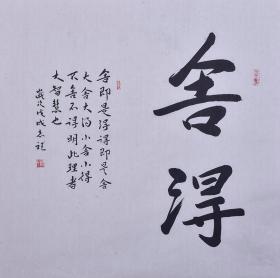 舍得
舍即是得得即是舍
大舍大得小舍小得
不舍不得明此理者
大智慧也
歲次戊戌